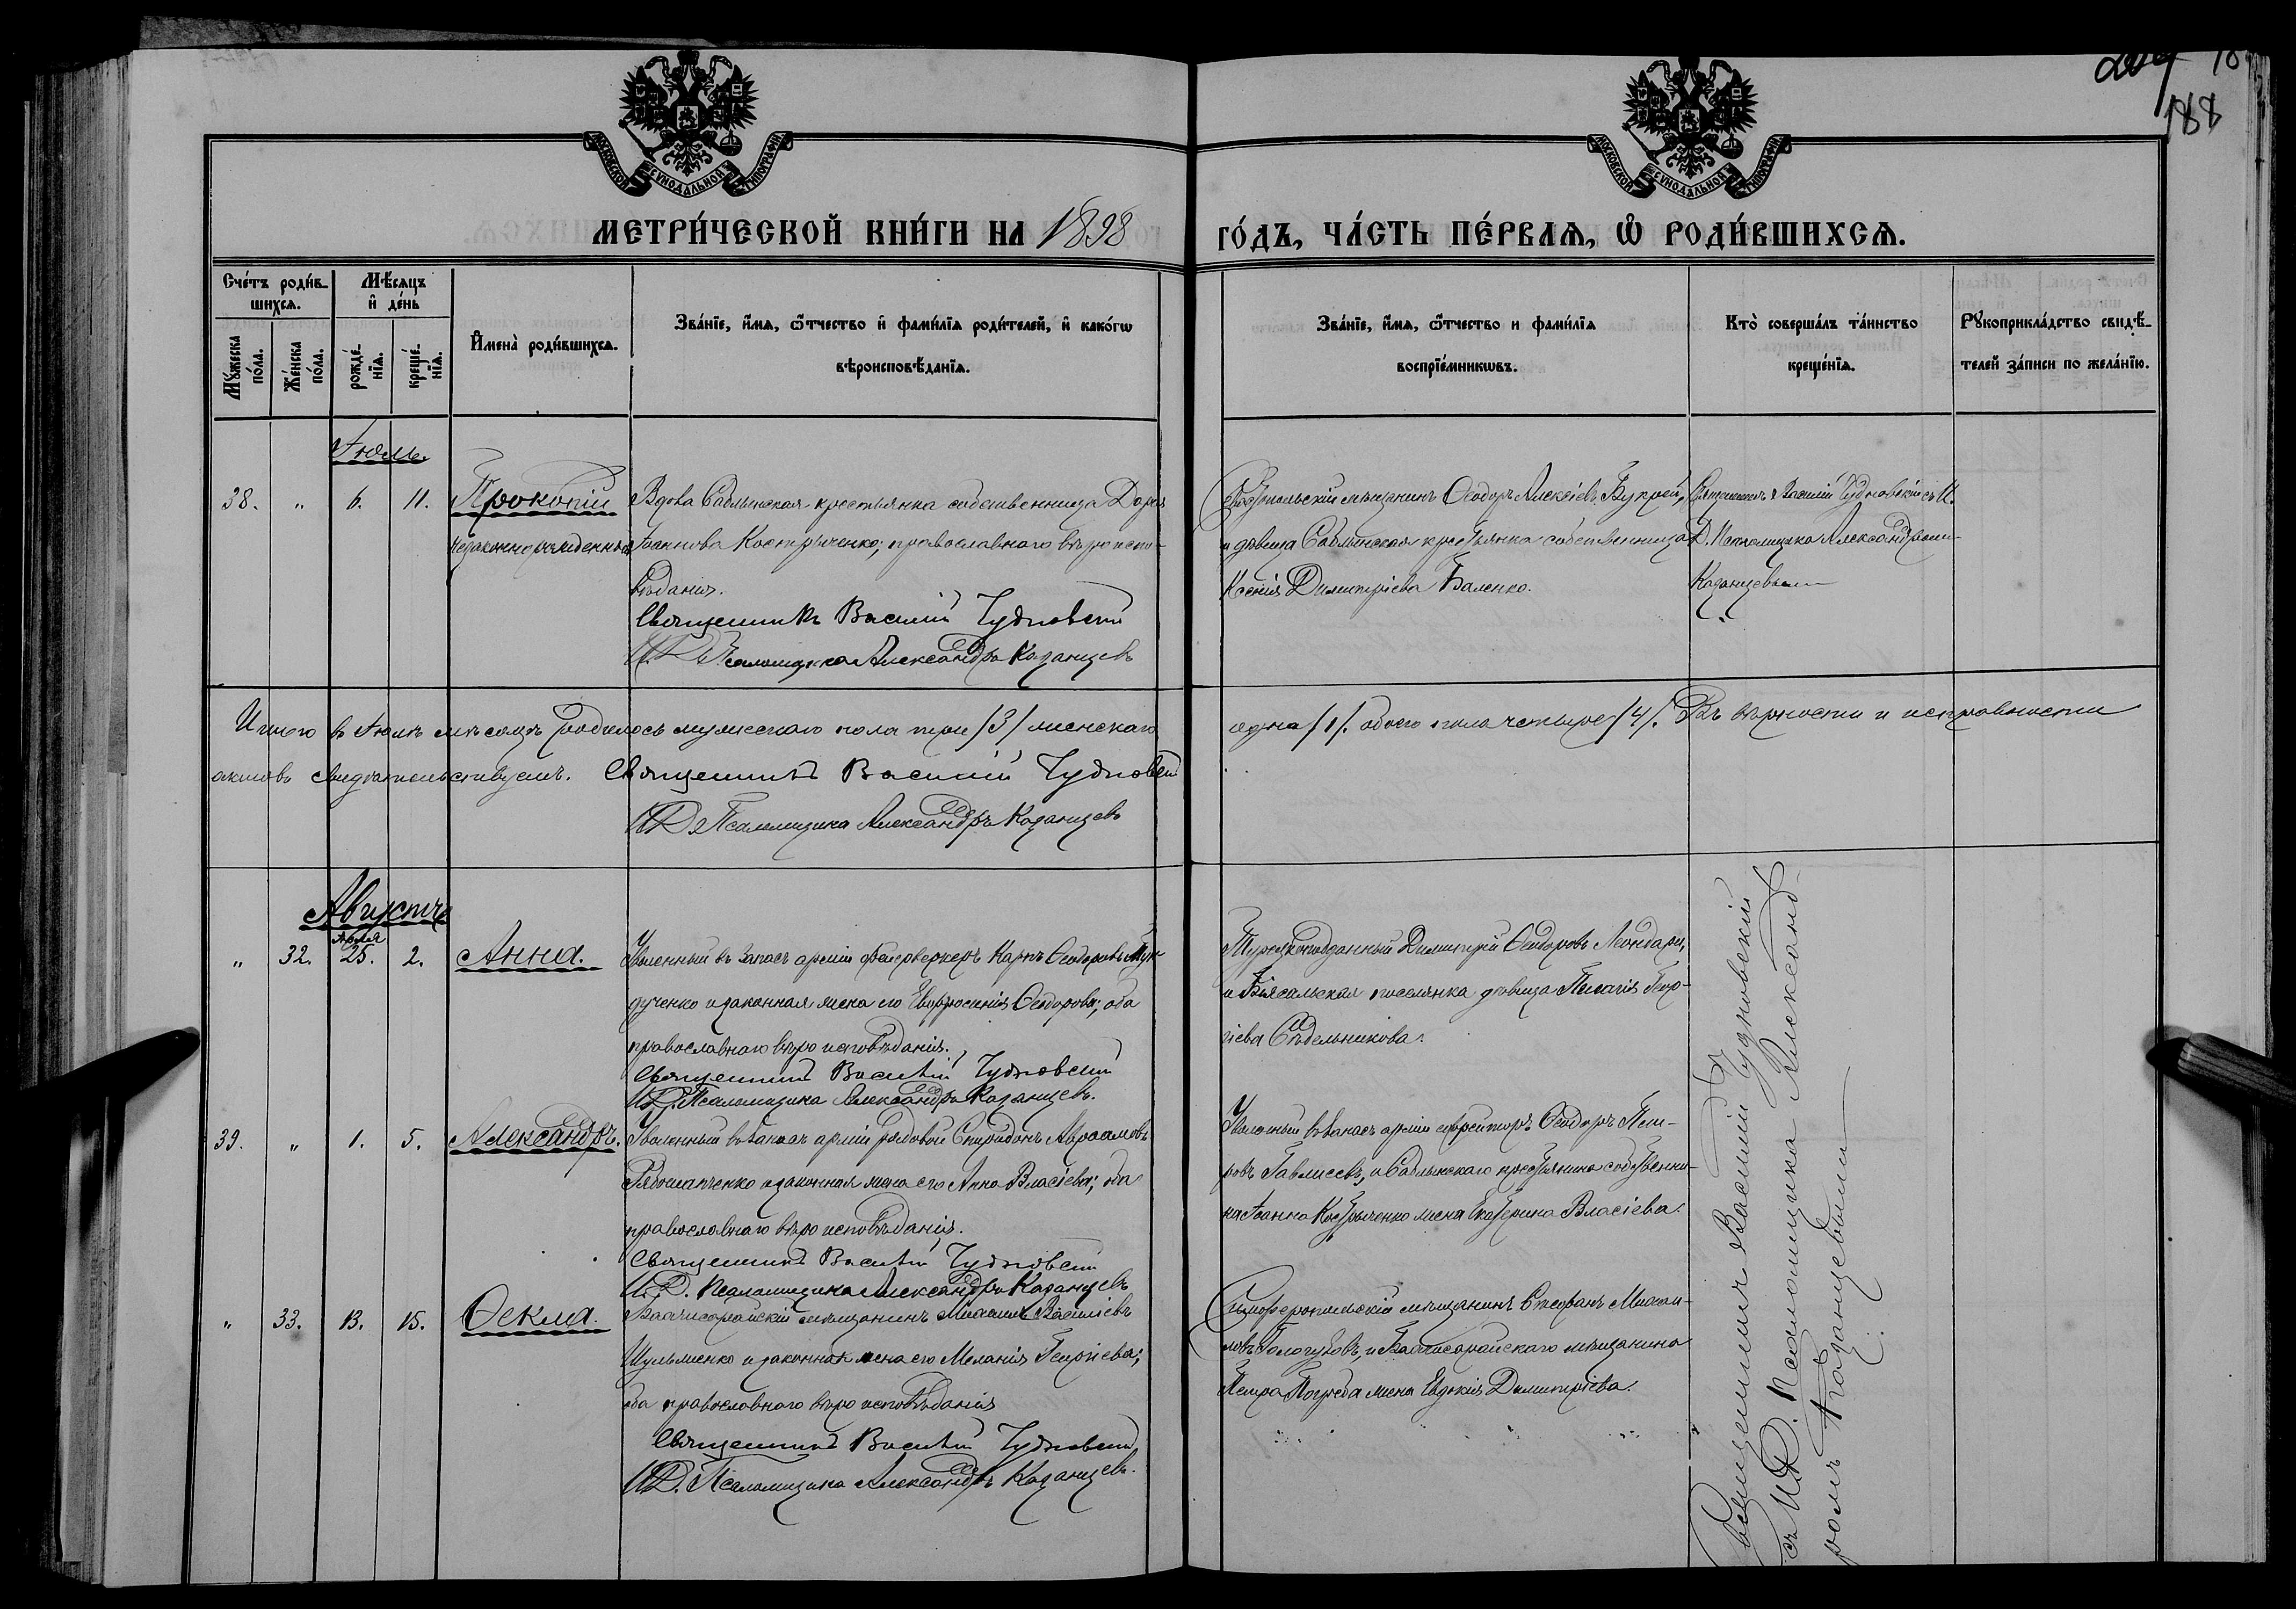 188
МОСКОВСКОЙ СѴНОДАЛЬНОЙ ТИПОГРАФІИ
МОСКОВСКОЙ СѴНОДАЛЬНОЙ ТИПОГРАФІИ
МЕТРИ́ЧЕСКОЙ КНИ́ГИ НА 1898 ГО́ДЪ, ЧА́СТЬ ПЕ́РВАЯ, Ѡ҆ РОДИ́ВШИХСЯ.
Сче́тъ роди́в-
шихся.
Му́жеска
по́ла.
Же́нска
по́ла.
Мѣ́сяцъ
и҆ де́нь
рожде́-
нїя.
креще́-
нїя.
И҆мена̀ роди́вшихся.
Зва́нїе, и҆́мя, ѻ҆́тчество и҆ фами́лїя роди́телей, и҆ како́гѡ
вѣроисповѣ́данїя.
Зва́нїе, и҆́мя, ѻ҆́тчество и фами́лїя
воспрїе́мникѡвъ.
Кто̀ соверша́лъ та́инство
креще́нїя.
Рꙋкоприкла́дство свидѣ́-
телей за́писи по жела́нїю.
Іюль.
38. „ 6. 11. Прокопій
незаконнорожденный
Вдова Саблынская крестьянка собственница Дарія
Іоаннова Кострыченко, православнаго вѣроиспо-
вѣданія.
Священникъ Василій Чудновскій
И.Д. Псаломщика Александръ Казанцевъ
мѣщанинъ Ѳеодоръ Алексіевъ Букрей,
и дѣвица Саблынская крестьянка собственница
Ксенія Димитріева Баленко.
Священникъ Василій Чудновскій съ И.
Д. Псаломщика Александромъ
Казанцевымъ
Итого въ Іюлѣ мѣсяцѣ родилось мужескаго пола три /3/ женскаго
одна /1/. обоего пола четыре /4/. Въ вѣрности и исправности
актовъ свидѣтельствуемъ. Священникъ Василій Чудновскій
И.Д. Псаломщика Александръ Казанцевъ
Августъ
„ 32. Іюля 25. 2. Анна.
Уволенный въ запасъ арміи фейерверкеръ Карпъ Ѳеодоровъ
и законная жена его Евфросинія Ѳеодорова; оба
православнаго вѣроисповѣданія.
Священникъ Василій Чудновскій
И.Д. Псаломщика Александръ Казанцевъ.
Турецкоподданный Димитрій Ѳеодоровъ Леондари,
и Біясальская поселянка дѣвица Пелагія Геор-
гіева Сѣдельникова.
39. „ 1. 5. Александръ.
Уволенный въ запасъ арміи рядовой Спиридонъ Авраамовъ
Рябошапченко и законная жена его Анна Власіева; оба
православнаго вѣроисповѣданія.
Священникъ Василій Чудновскій
И.Д. Псаломщика Александръ Казанцевъ
Уволенный въ запасъ арміи ефрейторъ Ѳеодоръ Пет-
ровъ и Саблынскаго крестьянина собственни-
ка Іоанна Костыченко жена Екатерина Власіева.
„ 33. 13. 15. Ѳекла.
Бахчисарайскій мѣщанинъ Михаилъ Василіевъ
Шульженко и законная жена его Меланія Георгіева;
оба православнаго вѣроисповѣданія
Священникъ Василій Чудновскій
И.Д. Псаломщика Александръ Казанцевъ.
Симферопольскій мѣщанинъ Стефанъ Михаи-
ловъ и Бахчисарайскаго мѣщанина
Петра жена Евдокія Димитріева.
Священникъ Василій Чудновскій
съ И.Д. Псаломщика Александ-
ромъ Казанцевымъ